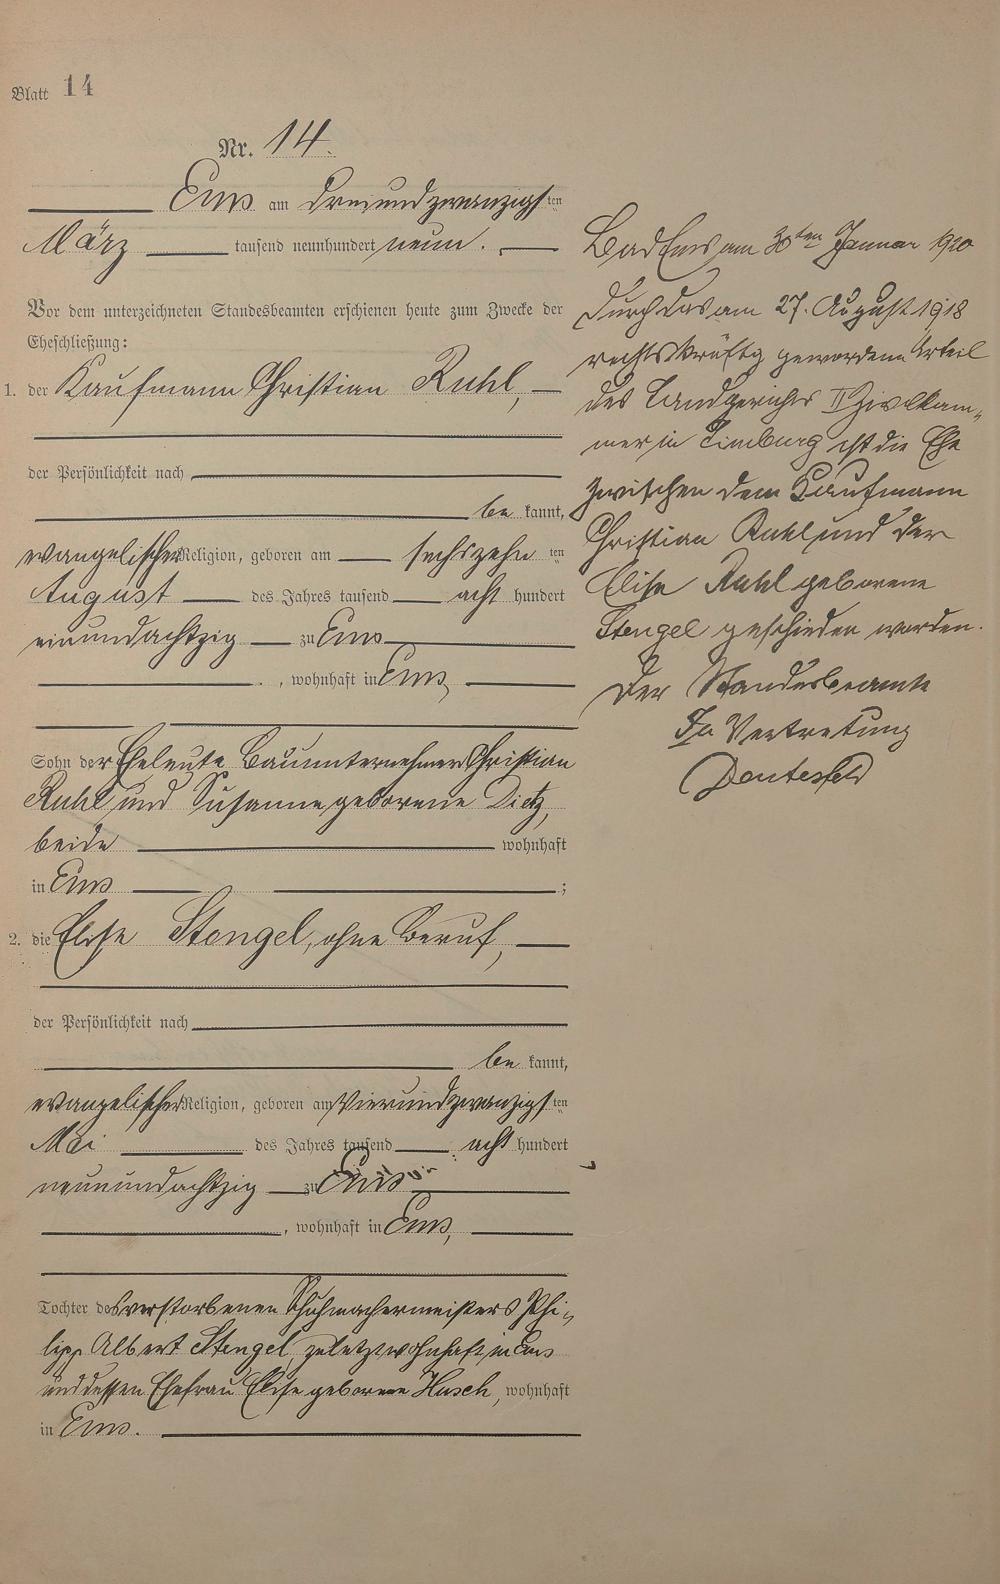 Blatt 14
Nr. 14.
Ems am dreiundzwanzigsten
März tausend neunhundert neun.
Vor dem unterzeichneten Standesbeamten erschienen heute zum Zwecke der
Eheschließung:
1. der Kaufmann Christian Ruhl,
der Persönlichkeit nach
be kannt,
evangelischer Religion, geboren am sechszehn ten
August des Jahres tausend acht hundert
einundachtzig zu Ems
, wohnhaft in Ems,
Sohn der Eheleute Bauunternehmer Christian
Ruhl und Susanne geborene Dietz,
beide wohnhaft
in Ems ;
2. die Elise Stengel, ohne Beruf,
der Persönlichkeit nach
be kannt,
evangelischer Religion, geboren am vierundzwanzigsten
Mai des Jahres tausend acht hundert
neunundachtzig zu Ems
, wohnhaft in Ems,
Tochter des verstorbenen Schuhmachermeisters Phi-
lipp Albert Stengel, zuletzt wohnhaft in Ems
und dessen Ehefrau Elise geborene Husch, wohnhaft
in Ems.
Bad Ems am 30ten Januar 1920
Durch das am 27. August 1918
rechtskräftig gewordene Urteil
des Landgerichts II Zivilkam-
mer in Limburg ist die Ehe
zwischen dem Kaufmann
Christian Ruhl und der
Elise Ruhl geborene
Stengel geschieden worden.
Der Standesbeamte
In Vertretung